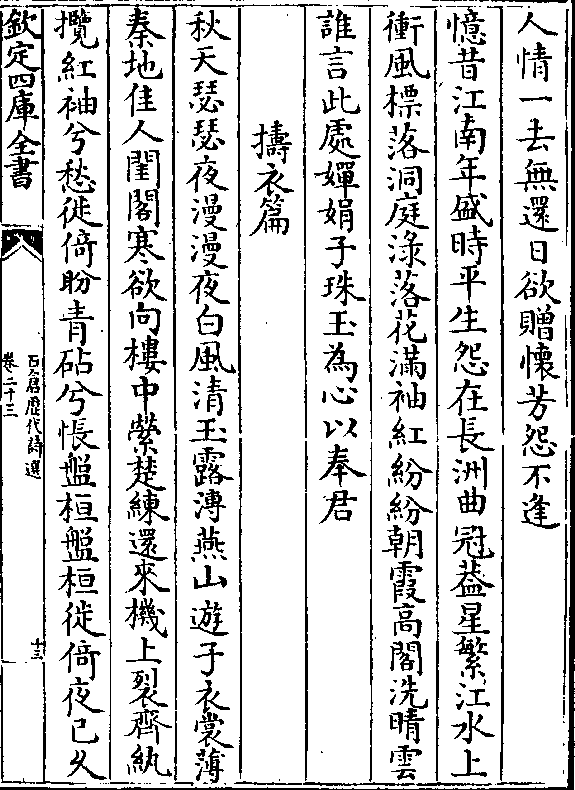 人情一去無還日欲贈懷芳怨不逢
憶昔江南年盛時平生怨在長洲曲冠葢星繁江水上
衝風標落洞庭淥落花滿袖紅紛紛朝霞高閣洗晴雲
誰言此處嬋娟子珠玉為心以奉君
擣衣篇
秋天瑟瑟夜漫漫夜白風清玉露漙燕山遊子衣裳薄
秦地佳人閨閣寒欲向樓中縈楚練還來機上裂齊紈
攬紅袖兮愁徙倚盼青砧兮悵盤桓盤桓徙倚夜已久
欽定四庫全書
石倉歷代詩選
卷二十三
十三